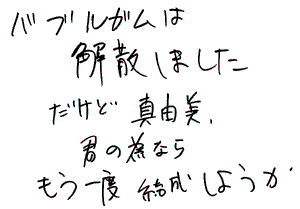 バブルガムは
解散しました
だけど 真由美、
君の為なら
もう一度 結成しようか